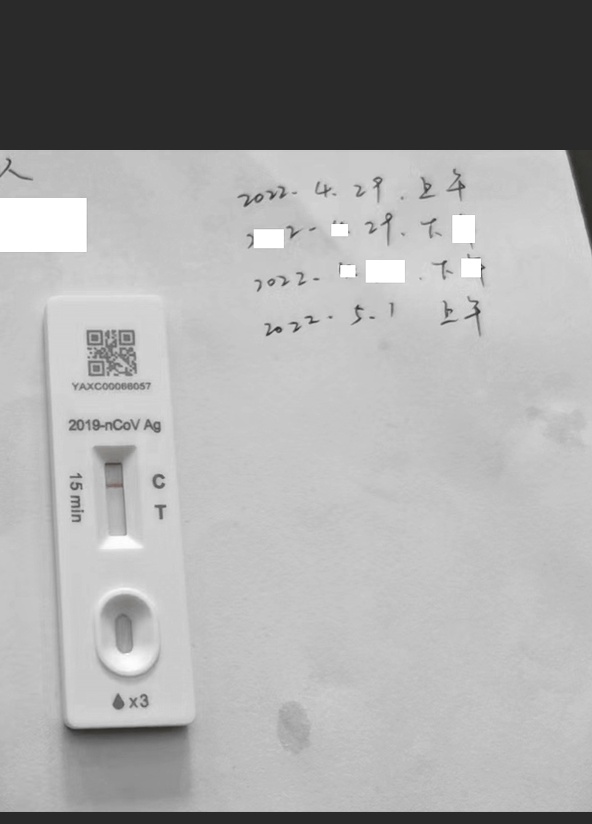 人
2022. 4. 29. 上午
2 - 29. 下
2022. . 下
2022. 5. 1 上午
YAXC00086057
2019-nCoV Ag
15 min
C
T
x3